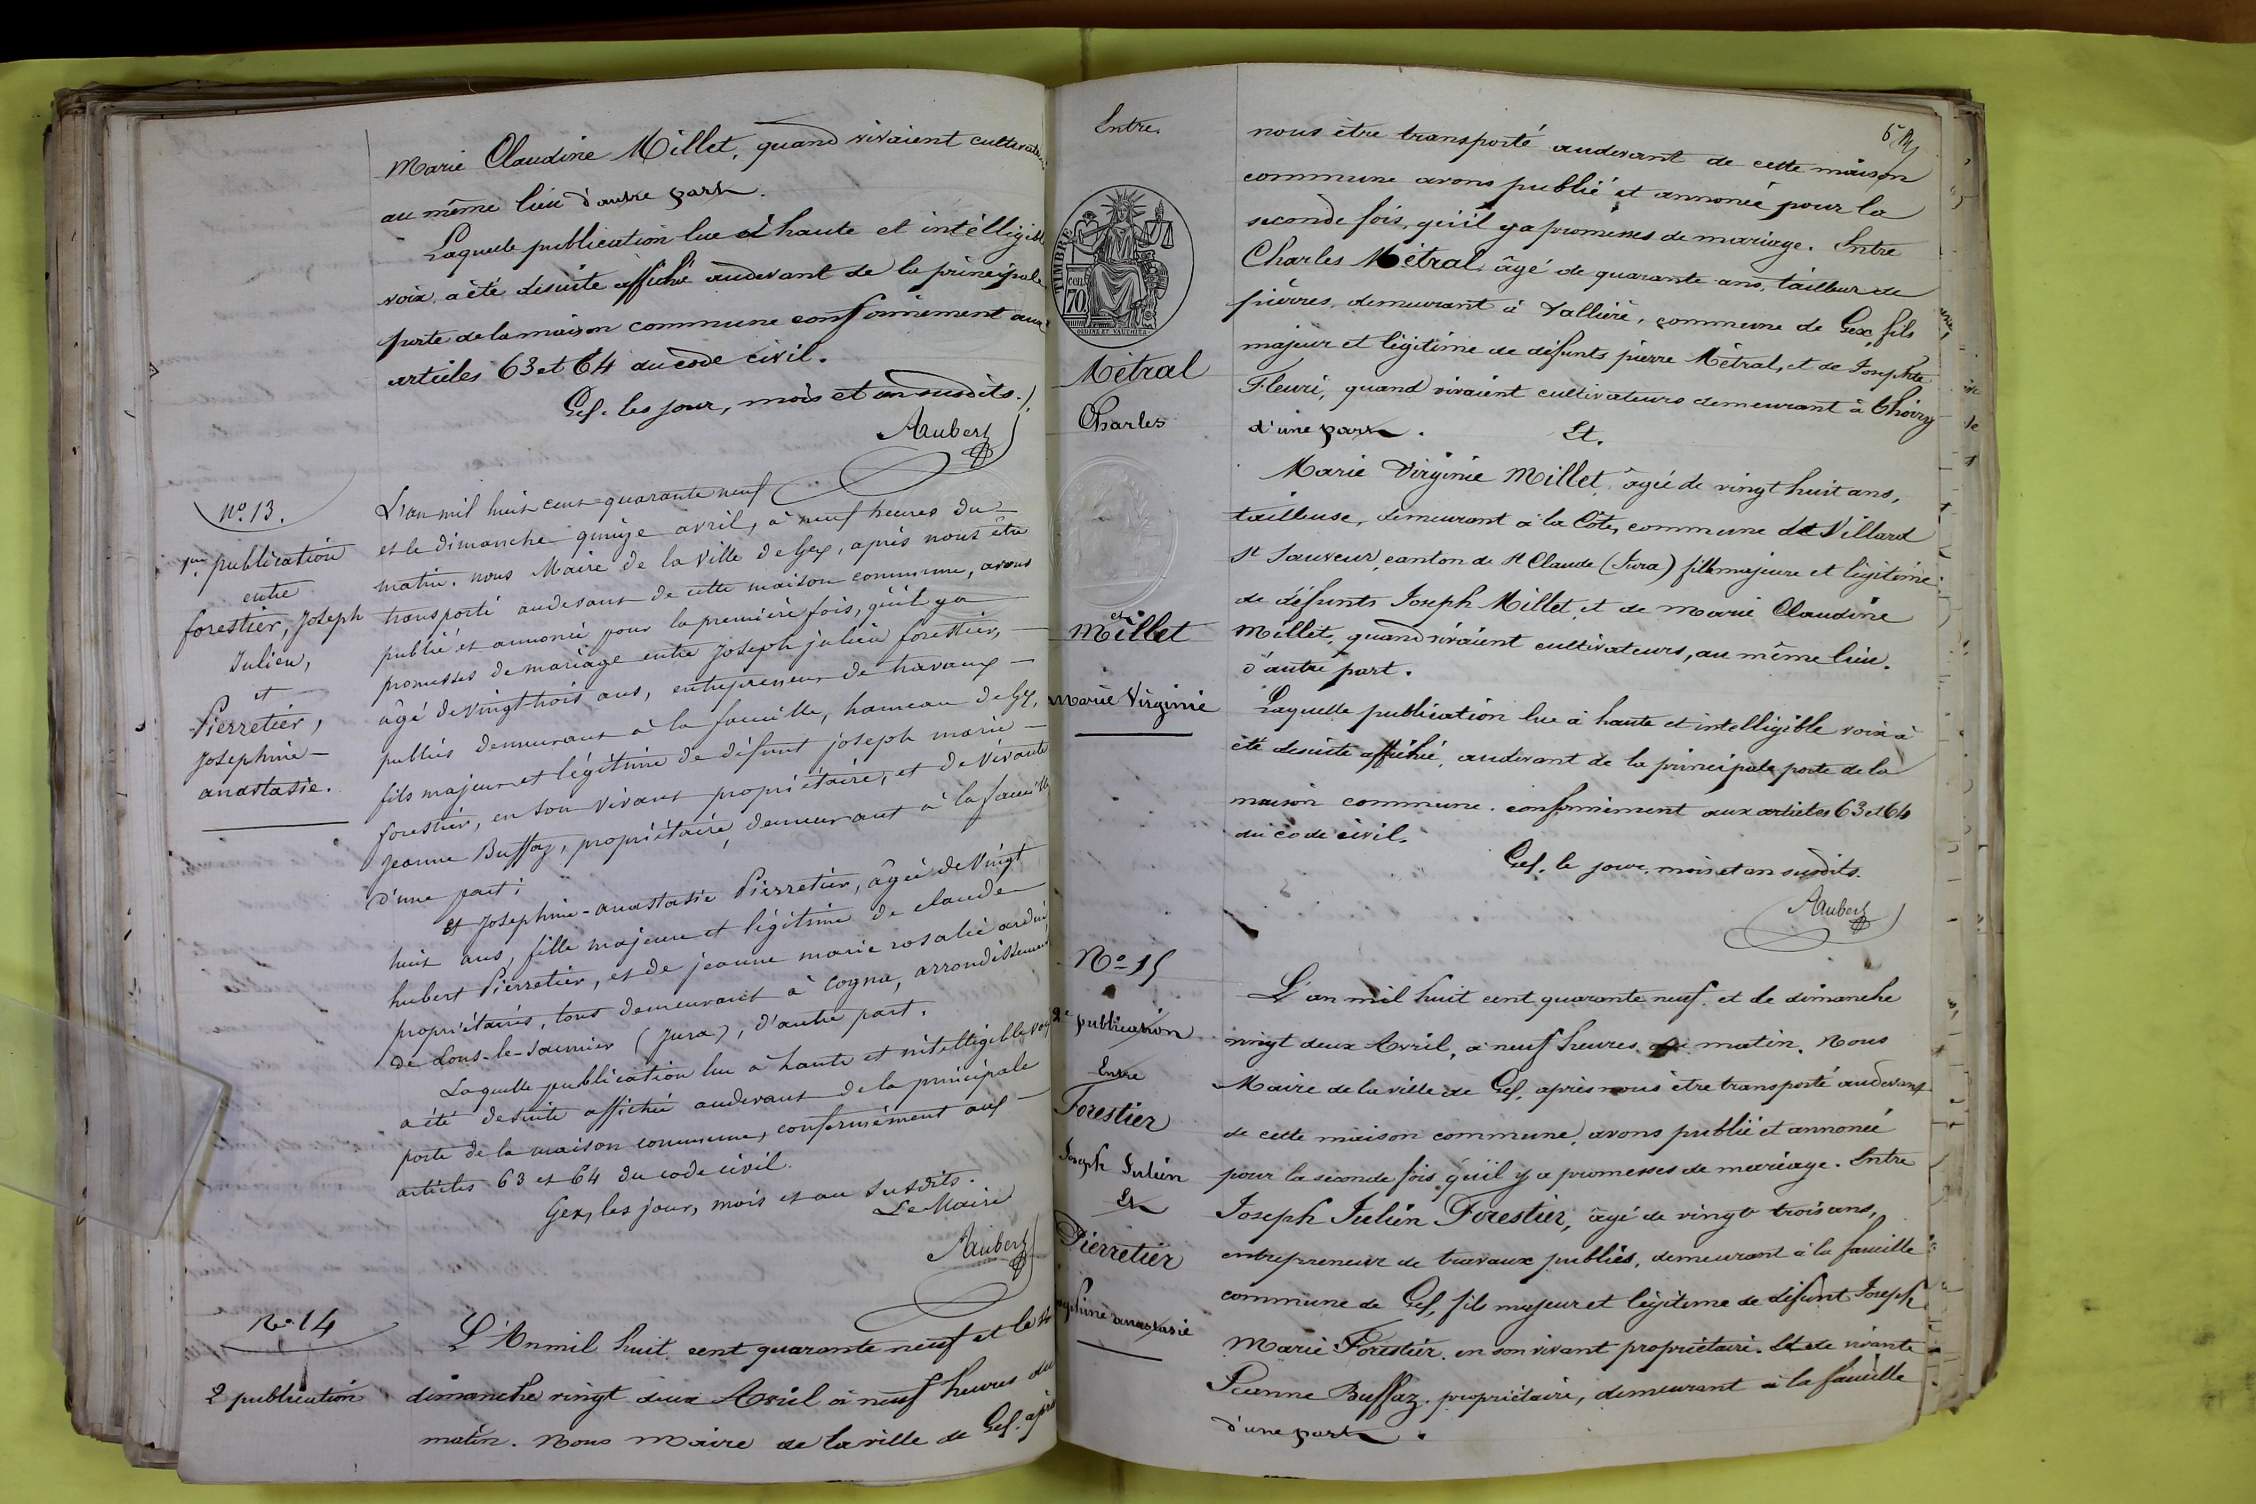 Marie Claudine Millet, quand vivaient cultivateurs
au même lieu d'autre part.
Laquelle publication lue à haute et intélligible
voix, a été désuite affiché audevant de la principale
porte de la maison commune conformément aux
articles 63 et 64 du code civil.
Gex. les jour, mois et an susdits.
Aubert
No. 13.
1ere publication
entre
forestier, Joseph
Julien,
et
Pierretier,
Josephine-
anastasie.
L'an mil huit cent quarante neuf
et le dimanche quinze avril, à neuf heures du
matin. nous Maire de la Ville de Gex, après nous être
transporté audevant de cette maison commune, avons
publié et annoncé pour la première fois, qu'il y a
promesses de mariage entre Joseph julien forestier,
âgé de vingt trois ans, entrepreneur de travaux
publics demeurant à la faucille, hameau de Gex,
fils majeur et légitime de défunt joseph marie
forestier, en son vivant propriétaire, et de vivante
Jeanne Buffaz, propriétaire, demeurant à la faucille
d'une part;
et Josephine-anastasie Pierretier, âgée de vingt
huit ans, fille majeure et légitime de claude
hubert Pierretier, et de jeanne marie rosalie
propriétaires, tous demeurant à Cogna, arrondissement
de Lons-le-Saunier (Jura), d'autre part.
Laquelle publication lue à haute et intelligible voix
a été desuite affichée audevant de la principale
porte de la maison commune, conformément aux
articles 63 et 64 du code civil.
Gex, les jour, mois et an susdits.
Le Maire
Aubert
No. 14
2 publication
L'An mil huit cent quarante neuf et le
dimanche vingt deux Avril à neuf heures du
matin. Nous Maire de la ville de Gex. après
Entre
TIMBRE
cen
70
Métral
Charles
et
Millet
Marie Virginie
6
nous être transporté audevant de cette maison
commune avons publié et annoncé pour la
seconde fois, qu'il y a promesses de mariage. Entre
Charles Métral, âgé de quarante ans, tailleur de
pierres, demeurant à Vallière, commune de Gex, fils
majeur et légitime de défunts pierre Métral, et de Josephte
Fleuri, quand vivaient cultivateurs demeurant à Thoiry
d'une part. Et.
Marie Virginie Millet, âgée de vingt huit ans,
tailleuse, demeurant à la Côte, commune de Villard
St Sauveur, canton de St Claude (Jura) fille majeure et légitime
de défunts Joseph Millet et de Marie Claudine
Millet, quand vivaient cultivateurs, au même lieu.
d'autre part.
Laquelle publication lue à haute et intelligible voix a
été desuite affiché, audevant de la principale porte de la
maison commune. conformément aux articles 63 et 64
du code civil.
Gex. le jour, mois et an susdits.
Aubert
No 15
2e publication
Entre
Forestier
Joseph Julien
Et
Pierretier
Josephine anastasie
L'an mil huit cent quarante neuf. et le dimanche
vingt deux Avril, à neuf heures du matin. Nous
Maire de la ville de Gex, après nous être transporté audevant
de cette maison commune, avons publié et annoncé
pour la seconde fois qu'il y a promesses de mariage. Entre
Joseph Julien Forestier, âgé de vingt trois ans,
entrepreneur de travaux publics, demeurant à la faucille
commune de Gex, fils majeur et légitime de défunt Joseph
Marie Forestier. en son vivant propriétaire. Et de vivante
Jeanne Buffaz. propriétaire, demeurant à la faucille
d'une part.